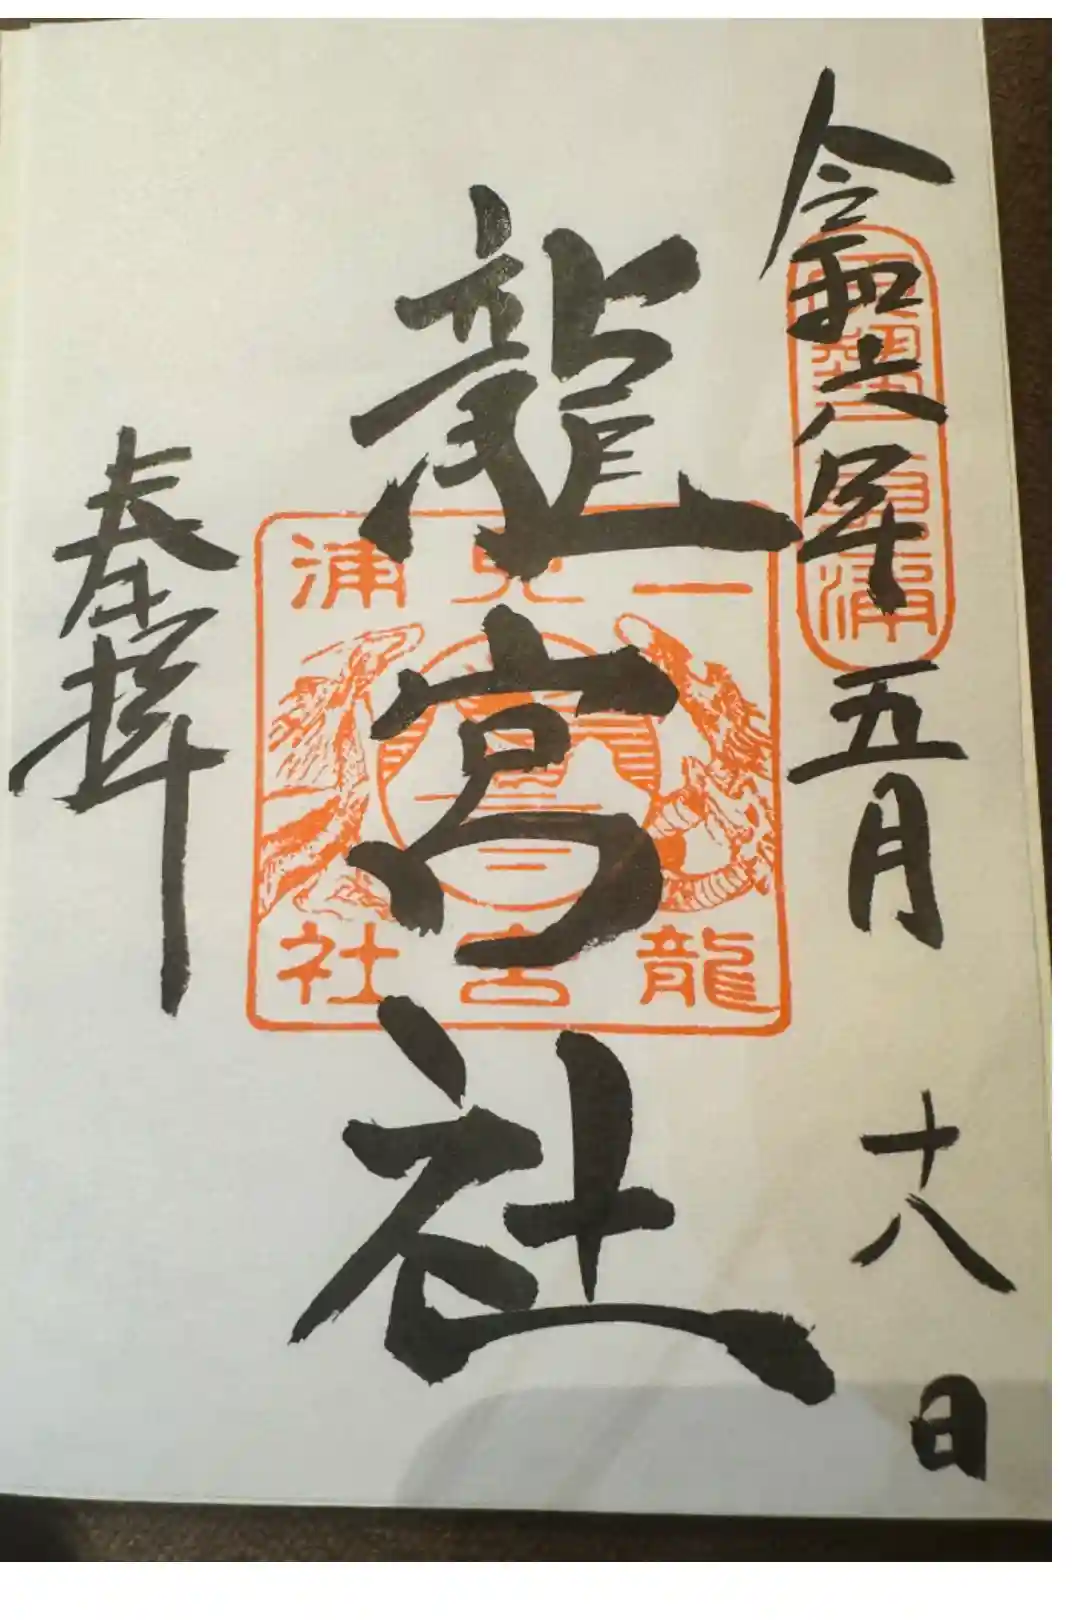 令和六年五月十八日
龍宮社
二見浦
龍宮社
奉拝